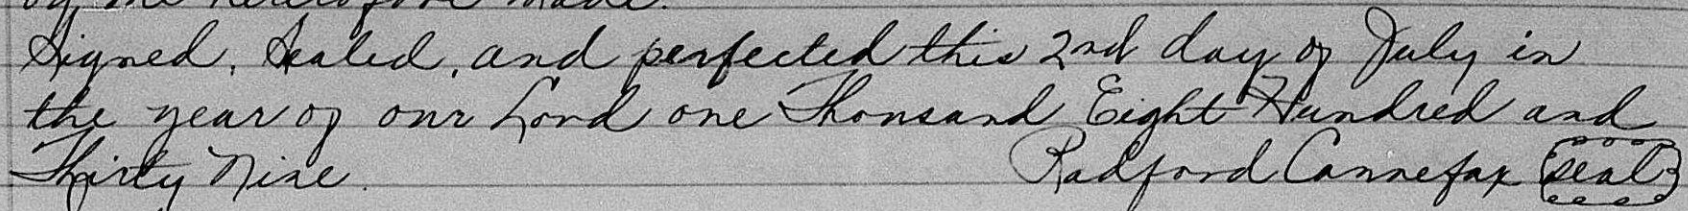 by me heretofore made.
Signed, Sealed, and perfected this 2nd day of July in
the year of our Lord one Thousand Eight Hundred and
Thirty Nine. Radford Cannefax (seal)